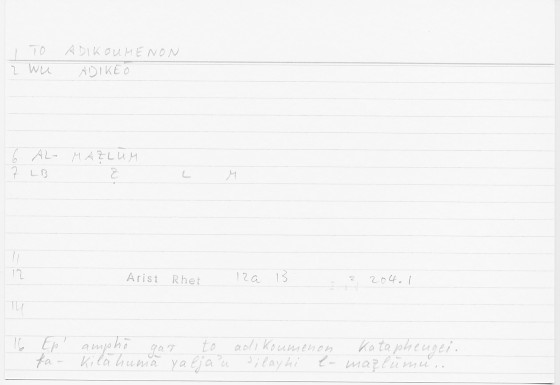 1 TO ADIKOUMENON
2 WU ADIKEŌ
6 AL- MAẒLŪM
7 LB Ẓ L M
11
12 Arist Rhet 12a 13 204.1
14
16 Ep' amphī gar to adikoumenon kataphengei.
fa- kilāhumā yalja'u 'ilayhi l- maẓlūmu..